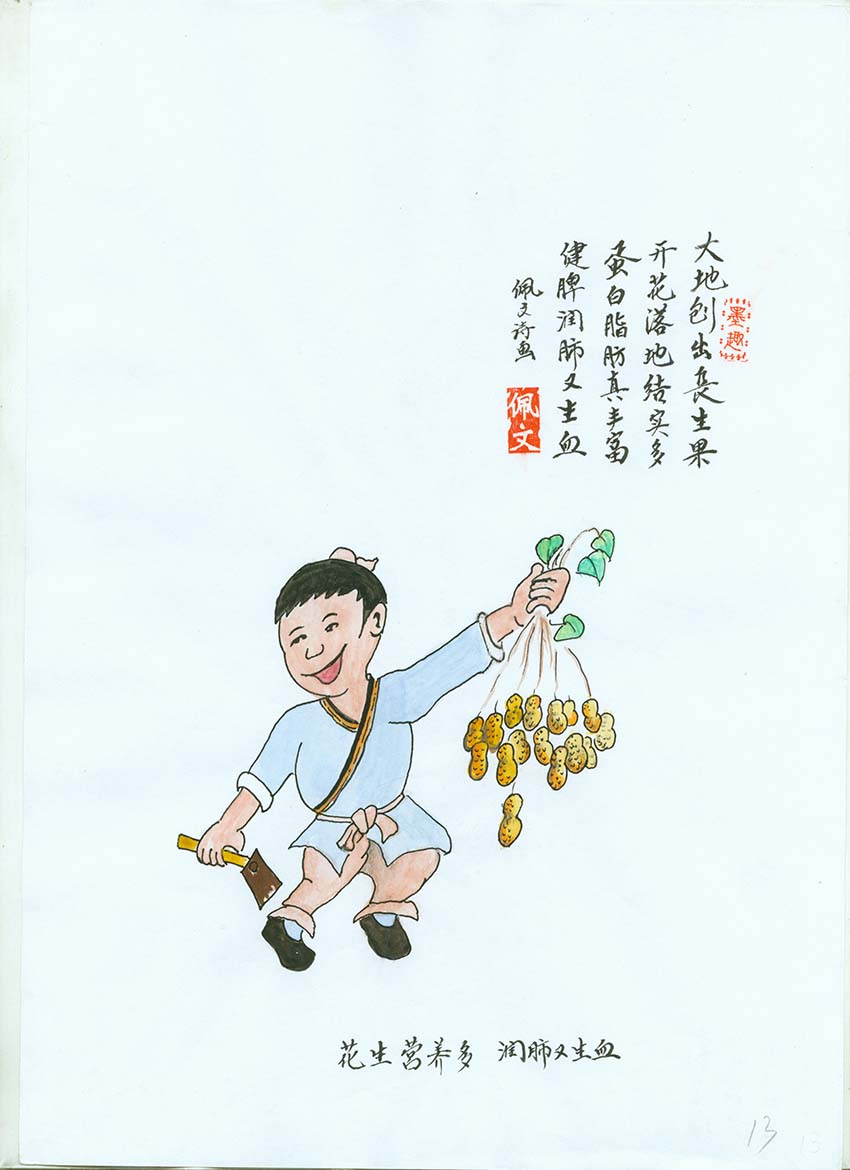 大地刨出长生果
开花落地结实多
蛋白脂肪真丰富
健脾润肺又生血
佩文诗画
墨趣
佩文
花生营养多 润肺又生血
13
13